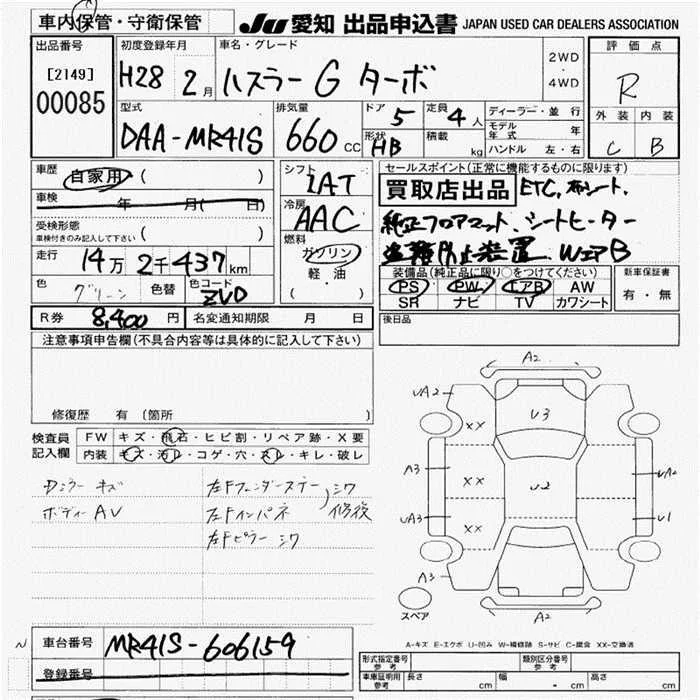 車内保管・守衛保管
JU 愛知 出品申込書 JAPAN USED CAR DEALERS ASSOCIATION
出品番号
[2149]
00085
初度登録年月
H28 2月
車名・グレード
ハスラー G ターボ
2WD
・
4WD
評価点
R
外装 内装
C B
型式
DAA-MR41S
排気量
660 CC
ドア
5
形状
HB
定員
4人
積載
kg
ディーラー・並行
モデル年式 年
ハンドル 左・右
車歴
自家用 ( )
車検 年 月( 日)
受検形態
車検付きのみ記入して下さい ( )
走行
14万 2千437km
色
グリーン
色替
色コード
ZVD
シフト
IAT
冷房
AAC
燃料
ガソリン
軽油
( )
セールスポイント(正常に機能するものに限ります)
買取店出品 ETC, 布シート,
純正フロアマット、シートヒーター
盗難防止装置、WエアB
装備品(純正品に限り○をつけてください)
PS PW エアB AW
SR ナビ TV カワシート
新車保証書
有・無
R券 8,400円 名変通知期限 月 日
後日品
注意事項申告欄(不具合内容等は具体的に記入して下さい)
修復歴 有 〔箇所 〕
検査員記入欄
FW キズ・飛石・ヒビ割・リペア跡・X要
内装 キズ・汚レ・コゲ・穴・スレ・キレ・破レ
Dミラー キズ
ボディーAV
左Fフェンダーステー
左Fインパネ
左Fピラー シワ
シワ
修後
A2
UA2
U3
XX
XX
A3
XX
XX
U2
UA2
UA3
XX
XX
U1
A3
A2
スペア
A-キズ E-エクボ U-凹み W-補修跡 S-サビ C-腐食 XX-交換済
N
車台番号 MR41S-606159
登録番号
形式指定番号 参考
類別区分番号 参考
車庫証明用 参考 長さ cm 幅 - cm 高さ cm